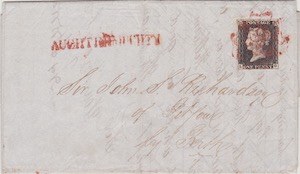 POSTAGE
ONE PENNY
Sir John S. Richardson
of Pitfour
by Perth